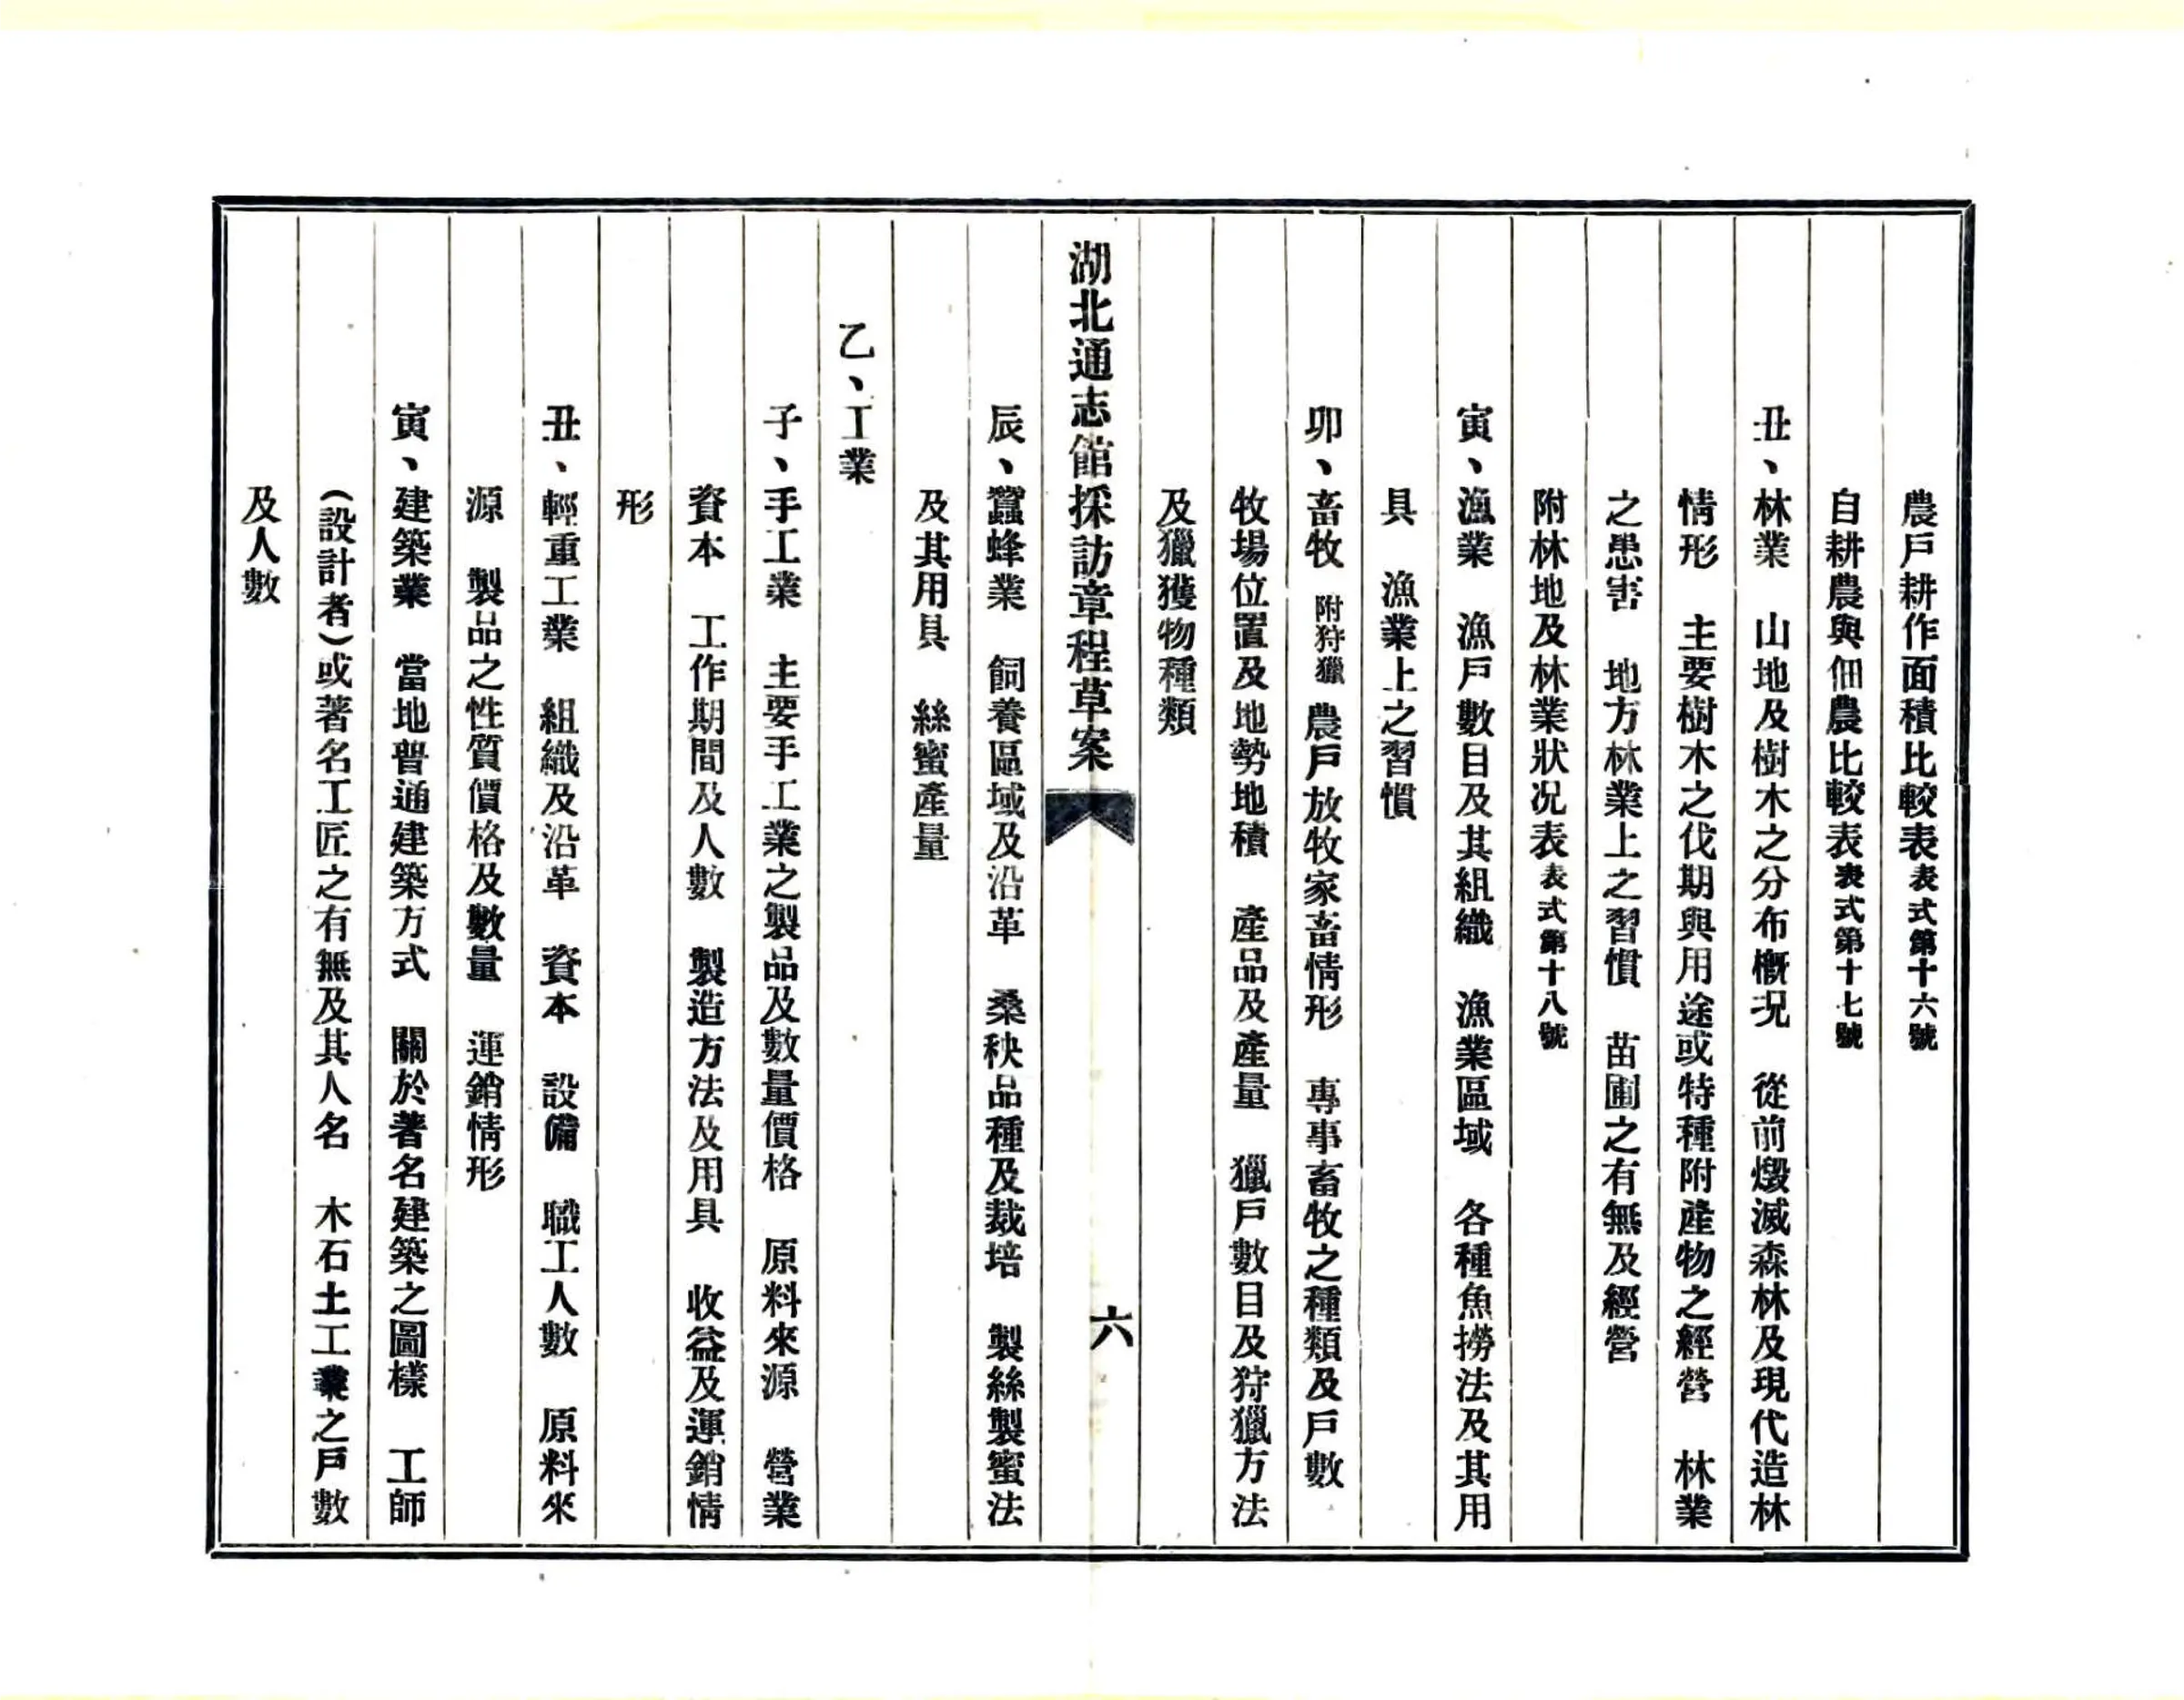 農戶耕作面積比較表表式第十六號
自耕農與佃農比較表表式第十七號
丑、林業　山地及樹木之分布概況　從前燬滅森林及現代造林
情形　主要樹木之伐期與用途或特種附產物之經營　林業
之患害　地方林業上之習慣　苗圃之有無及經營
附林地及林業狀况表表式第十八號
寅、漁業　漁戶數目及其組織　漁業區域　各種魚撈法及其用
具　漁業上之習慣
卯、畜牧　附狩獵　農戶放牧家畜情形　專事畜牧之種類及戶數
牧場位置及地勢地積　產品及產量　獵戶數目及狩獵方法
及獵獲物種類
湖北通志館採訪章程草案
六
辰、蠶蜂業　飼養區域及沿革　桑秧品種及栽培　製絲製蜜法
及其用具　絲蜜產量
乙、工業
子、手工業　主要手工業之製品及數量價格　原料來源　營業
資本　工作期間及人數　製造方法及用具　收益及運銷情
形
丑、輕重工業　組織及沿革　資本　設備　職工人數　原料來
源　製品之性質價格及數量　運銷情形
寅、建築業　當地普通建築方式　關於著名建築之圖樣　工師
（設計者）或著名工匠之有無及其人名　木石土工業之戶數
及人數